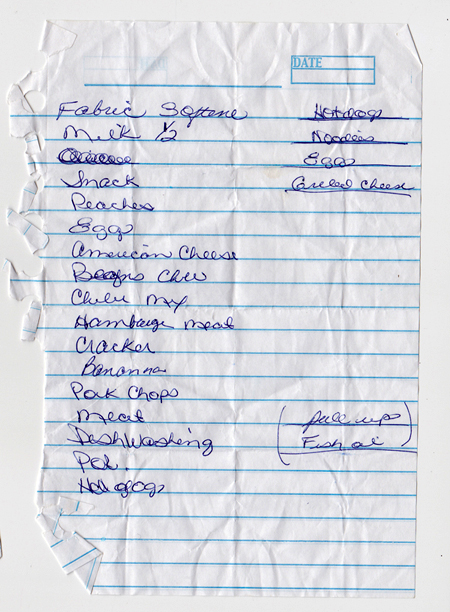 DATE
Fabric Softene
Milk 1/2
Snack
Peaches
Eggs
American Cheese
Beans
Hamburge meat
Cracker
Bananna
Pork Chops
meat
DishWashing
Pot.
Hot dogs
Hot dogs
Noodles
Eggs
cheese
(pull ups
Fish oil)